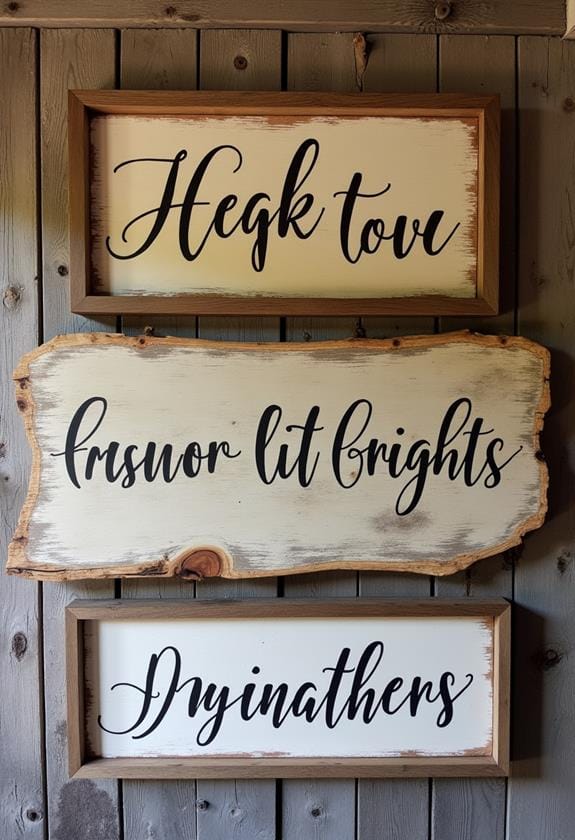 Hegk tove
fmsuor lit brights
Dryinathers